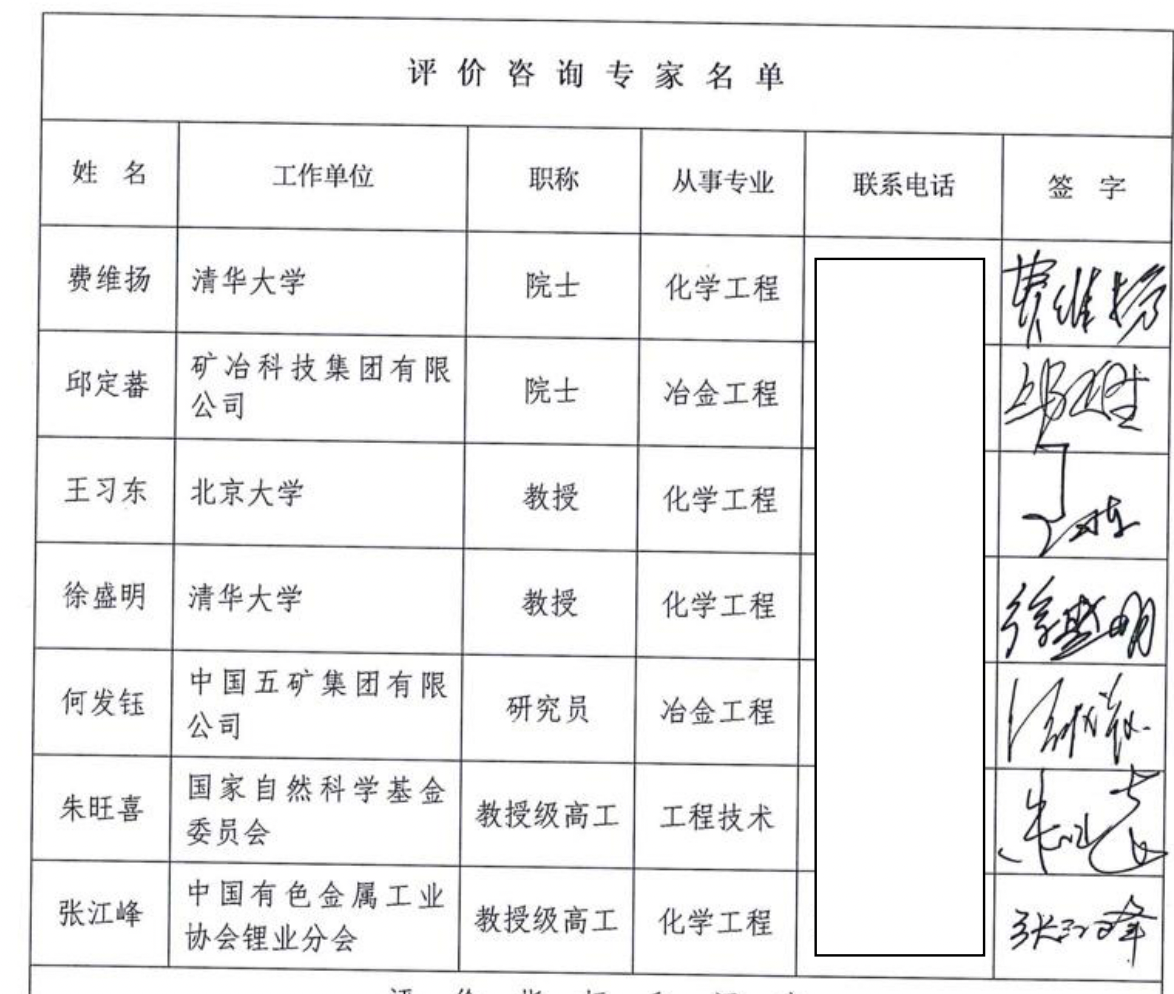 评价咨询专家名单
姓 名 工作单位 职称 从事专业 联系电话 签 字
费维扬 清华大学 院士 化学工程 费维扬
邱定蕃 矿冶科技集团有限
公司 院士 冶金工程
王习东 北京大学 教授 化学工程
徐盛明 清华大学 教授 化学工程 徐盛明
何发钰 中国五矿集团有限
公司 研究员 冶金工程
朱旺喜 国家自然科学基金
委员会 教授级高工 工程技术
张江峰 中国有色金属工业
协会锂业分会 教授级高工 化学工程 张江峰